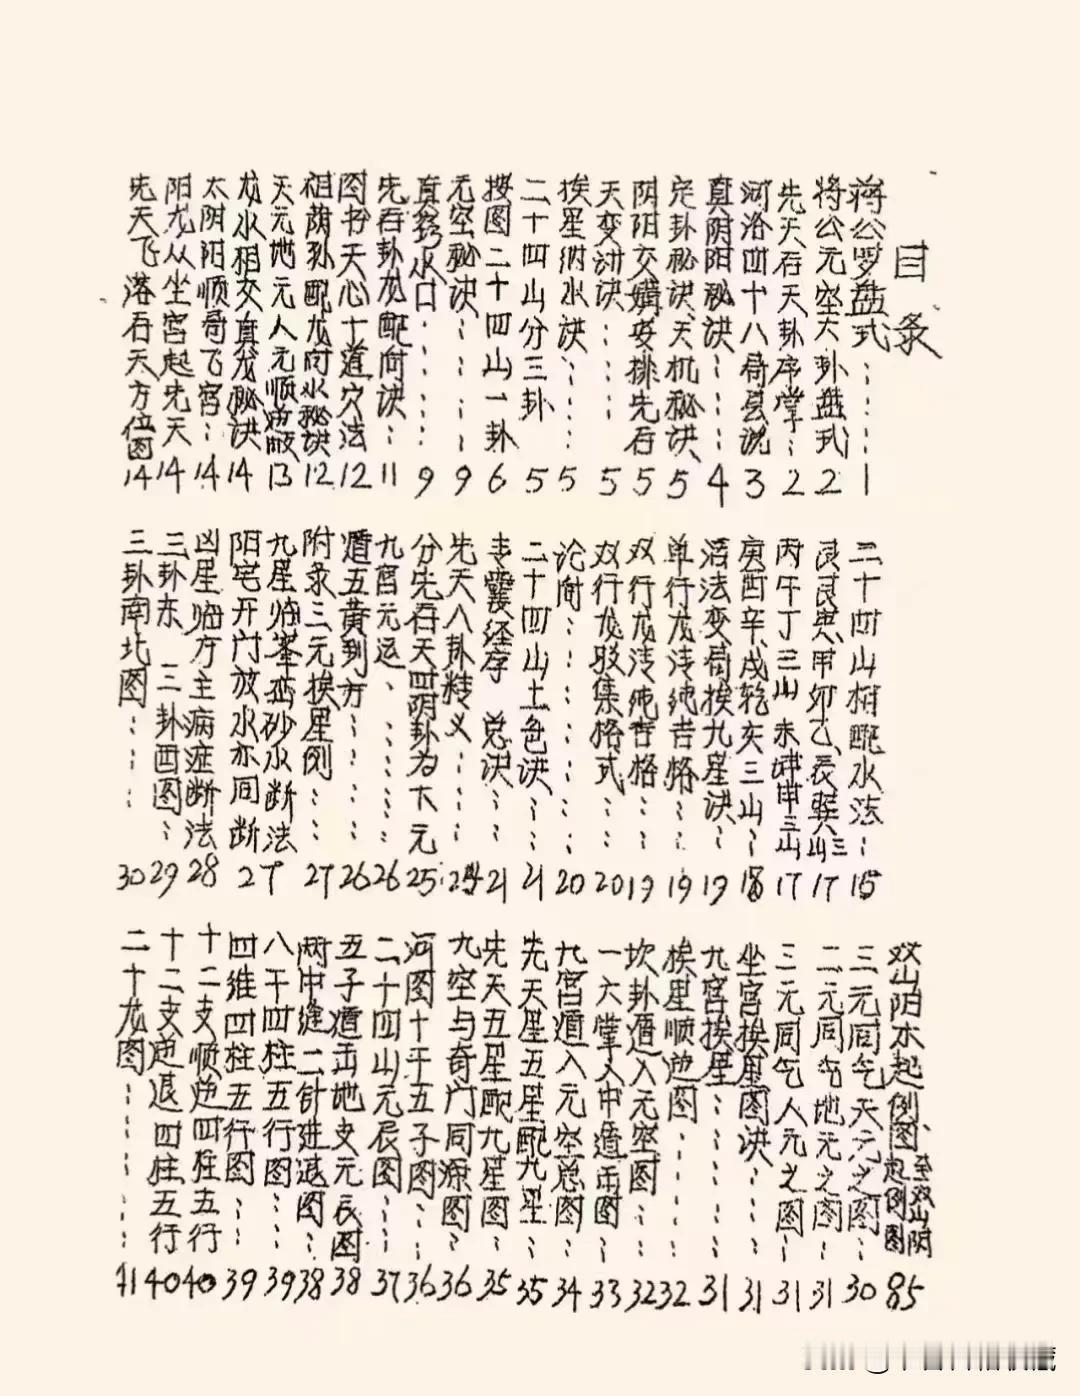 目录
蒋公罗盘式……1
将公元空大卦盘式 2
先天后天卦序掌… 2
河洛四十八局总说 3
真阴阳秘诀… 4
定卦秘诀、天机秘诀 5
阴阳交媾安排先后 5
天变诀…… 5
挨星纳水诀…… 5
二十四山分三卦 5
按图二十四山一卦 6
元空秘诀…… 9
真水口…… 9
先后卦龙配向诀… 11
图书天心十道穴法 12
祖荫孙配龙向水秘诀 12
天元地元人元顺逆 13
龙水相交真龙秘诀 14
太阴阳顺局飞宫… 14
阳龙从坐宫起先天 14
先天飞落后天方位图 14
二十四山相配水法… 15
艮寅、甲卯乙、辰巽山三 17
丙午丁三山 未坤申三山 17
庚酉辛、戌乾亥三山… 18
活法变局挨九星诀… 19
单行龙清纯吉格… 19
双行龙清纯吉格… 19
双行龙驳集格式… 20
论向…… 20
二十四山土色诀… 21
青囊经序 总诀… 21
先天八卦精义…… 24
分先后天四阴卦为下元 25
九宫元运…… 26
遁五黄到方…… 26
附录三元挨星例… 27
九星临峦峦砂水断法 27
阳宅开门放水亦同断 27
凶星临方主病症断法 28
三卦东 三卦西图… 29
三卦南北图…… 30
双山阳水起例图、至双山阴起例图 85
三元同气天元之图… 30
三元同气地元之图… 31
三元同气人元之图… 31
坐宫挨星图诀…… 31
九宫挨星…… 31
挨星顺逆图…… 32
坎卦遁入元空图… 32
一六掌入中遁击图… 33
九宫遁入元空总图… 34
先天星五星配九星… 35
先天五星配九星图… 35
九空与奇门同源图… 36
河图十干五子图… 36
二十四山元辰图… 37
五子遁击地支元辰图 38
两中缝二针进退图… 38
八干四柱五行图… 39
四维四柱五行图… 39
十二支顺逆四柱五行 40
十二支逆退四柱五行 40
二十龙图…… 41